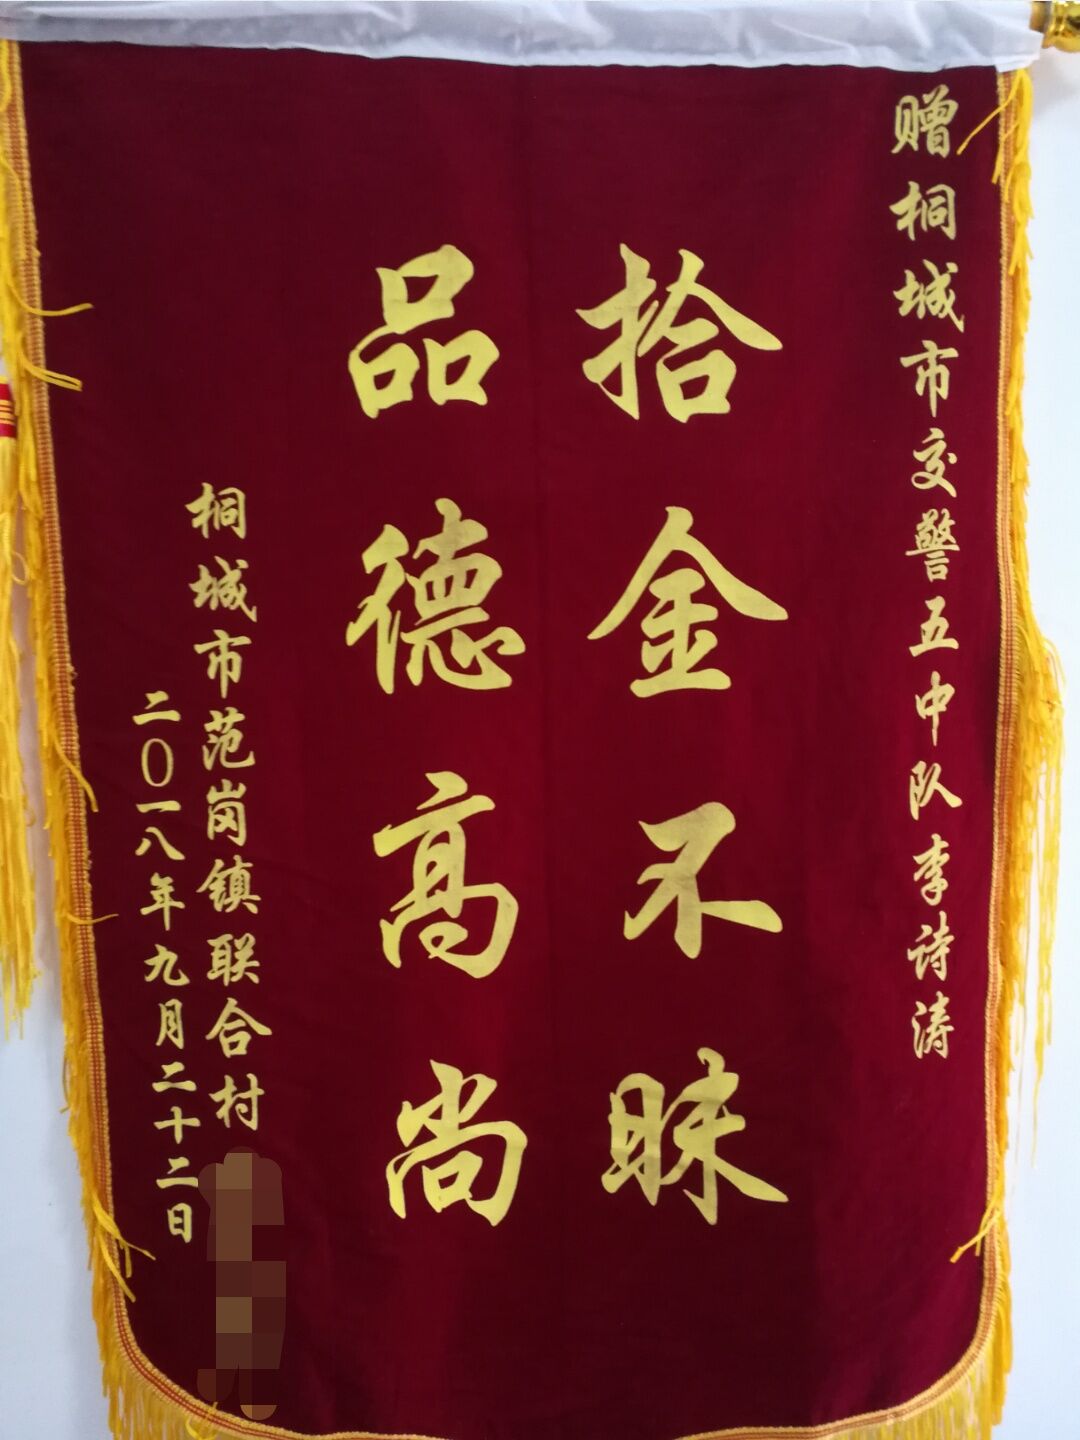 赠桐城市交警五中队李诗涛
拾金不昧
品德高尚
桐城市范岗镇联合村
二〇一八年九月二十二日